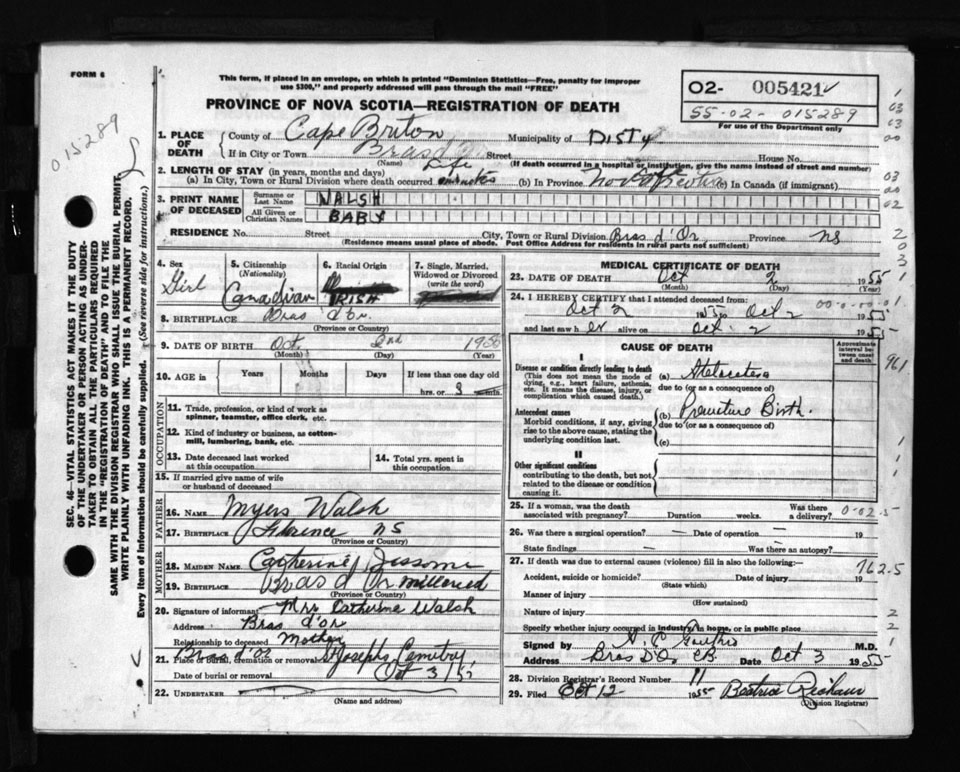 FORM 6
This form, if placed in an envelope, on which is printed "Dominion Statistics—Free, penalty for improper
use $300," and properly addressed will pass through the mail "FREE"
PROVINCE OF NOVA SCOTIA—REGISTRATION OF DEATH
02- 005421
55-02-015289
For use of the Department only
015289
1. PLACE OF DEATH County of Cape Briton Municipality of Dist 4
If in City or Town Bras d' Street House No.
(Name) (If death occurred in a hospital or institution, give the name instead of street and number)
2. LENGTH OF STAY (in years, months and days) Life
(a) In City, Town or Rural Division where death occurred minutes (b) In Province Nova Scotia (c) In Canada (if immigrant)
3. PRINT NAME OF DECEASED Surname or Last Name WALSH
All Given or Christian Names BABY
RESIDENCE No. Street City, Town or Rural Division Bras d'Or Province NS
(Residence means usual place of abode. Post Office Address for residents in rural parts not sufficient)
4. Sex Girl
5. Citizenship (Nationality) Canadian
6. Racial Origin IRISH
7. Single, Married, Widowed or Divorced (write the word)
8. BIRTHPLACE Bras d'Or
(Province or Country)
9. DATE OF BIRTH Oct. 2nd 1955
(Month) (Day) (Year)
10. AGE in Years Months Days If less than one day old
hrs. or 3 min.
OCCUPATION
11. Trade, profession, or kind of work as
spinner, teamster, office clerk, etc.
12. Kind of industry or business, as cotton-
mill, lumbering, bank, etc.
13. Date deceased last worked
at this occupation
14. Total yrs. spent in
this occupation
15. If married give name of wife
or husband of deceased
FATHER
16. NAME Myers Walsh
17. BIRTHPLACE Florence NS
(Province or Country)
MOTHER
18. MAIDEN NAME Catherine Jessome
19. BIRTHPLACE Bras d'Or
(Province or Country)
20. Signature of informant Mrs Catherine Walsh
Address Bras d'or
Relationship to deceased Mother
21. Place of burial, cremation or removal Bras d'or St Josephs Cemetry
Date of burial or removal Oct 3/55
22. UNDERTAKER
(Name and address)
MEDICAL CERTIFICATE OF DEATH
23. DATE OF DEATH Oct 2 1955
(Month) (Day)
24. I HEREBY CERTIFY that I attended deceased from:
Oct 2 1955 to Oct 2 1955
and last saw her alive on Oct. 2 1955
CAUSE OF DEATH
Approximate interval between onset and death
I
Disease or condition directly leading to death
(This does not mean the mode of
dying, e.g., heart failure, asthenia,
etc. It means the disease, injury, or
complication which caused death.)
(a) Atelectasis
due to (or as a consequence of)
Antecedent causes
Morbid conditions, if any, giving
rise to the above cause, stating the
underlying condition last.
(b) Premature Birth.
due to (or as a consequence of)
(c)
II
Other significant conditions
contributing to the death, but not
related to the disease or condition
causing it.
25. If a woman, was the death
associated with pregnancy? Duration weeks. Was there a delivery?
26. Was there a surgical operation? Date of operation 19
State findings Was there an autopsy?
27. If death was due to external causes (violence) fill in also the following:—
Accident, suicide or homicide? Date of injury 19
(State which)
Manner of injury
(How sustained)
Nature of injury
Specify whether injury occurred in industry, in home, or in public place
Signed by M.D.
Address Bras D'Or CB. Date Oct 3 1955
28. Division Registrar's Record Number 11
29. Filed Oct 12 1955 Beatrice
(Division Registrar)
961
0-02-5
762.5
SEC. 46—VITAL STATISTICS ACT MAKES IT THE DUTY
OF THE UNDERTAKER OR PERSON ACTING AS UNDER-
TAKER TO OBTAIN ALL THE PARTICULARS REQUIRED
IN THE "REGISTRATION OF DEATH" AND TO FILE THE
SAME WITH THE DIVISION REGISTRAR WHO SHALL ISSUE THE BURIAL PERMIT.
WRITE PLAINLY WITH UNFADING INK. THIS IS A PERMANENT RECORD.
Every item of information should be carefully supplied. (See reverse side for instructions.)